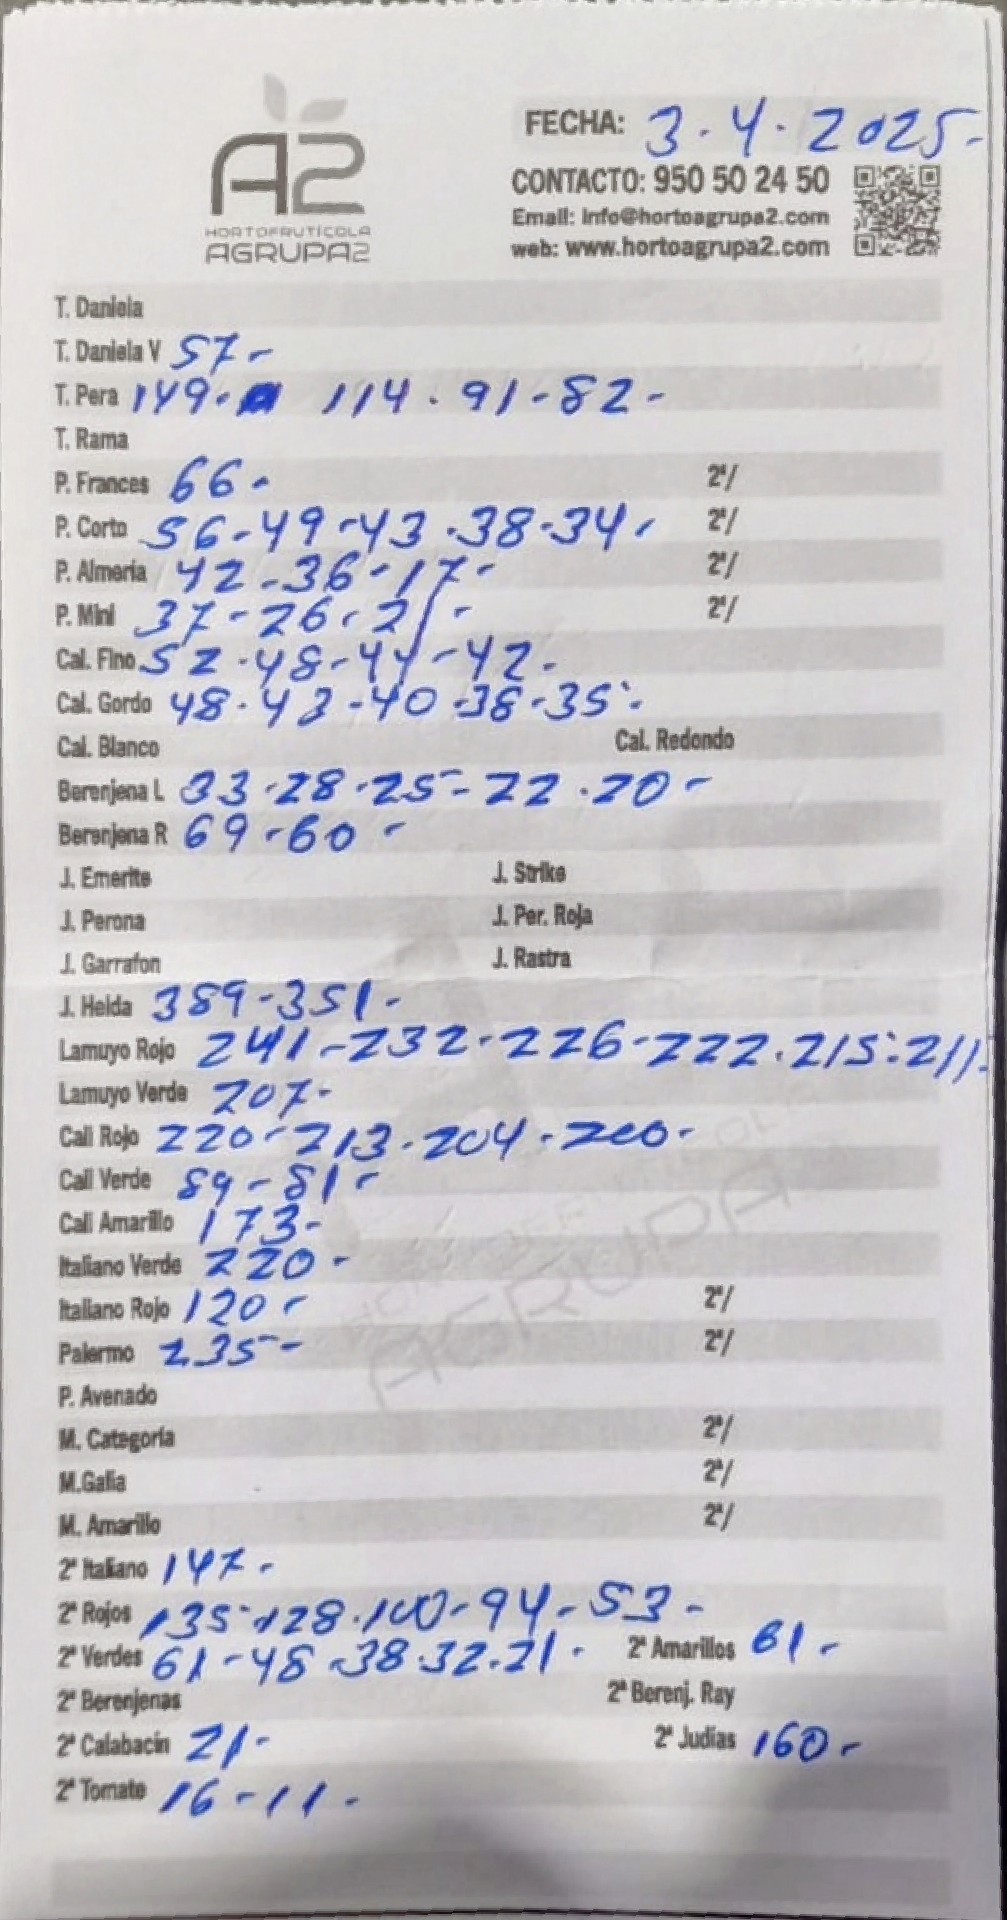 A2
HORTOFRUTÍCOLA
AGRUPA2
FECHA: 3.4.2025-
CONTACTO: 950 50 24 50
Email: info@hortoagrupa2.com
web: www.hortoagrupa2.com
T. Daniela
T. Daniela V 57-
T. Pera 149- 114.91-82-
T. Rama
P. Frances 66- 2ª/
P. Corto 56-49-43.38-34- 2ª/
P. Almería 42-36-17- 2ª/
P. Mini 37-26-21- 2ª/
Cal. Fino 52.48-44-42-
Cal. Gordo 48.43-40-38-35-
Cal. Blanco Cal. Redondo
Berenjena L 33-28-25-22.20-
Berenjena R 69-60-
J. Emerite J. Strike
J. Perona J. Per. Roja
J. Garrafon J. Rastra
J. Helda 389-351-
Lamuyo Rojo 241-232-226-222.215-211-
Lamuyo Verde 207-
Cali Rojo 220-213-204-200-
Cali Verde 89-81-
Cali Amarillo 173-
Italiano Verde 220-
Italiano Rojo 120- 2ª/
Palermo 235- 2ª/
P. Avenado
M. Categoría 2ª/
M.Galia 2ª/
M. Amarillo 2ª/
2ª Italiano 147-
2ª Rojos 135-128.100-94-53-
2ª Verdes 61-48-38.32-21- 2ª Amarillos 61-
2ª Berenjenas 2ª Berenj. Ray
2ª Calabacín 21- 2ª Judías 160-
2ª Tomate 16-11-
HORTOFRUTICOLA
AGRUPA